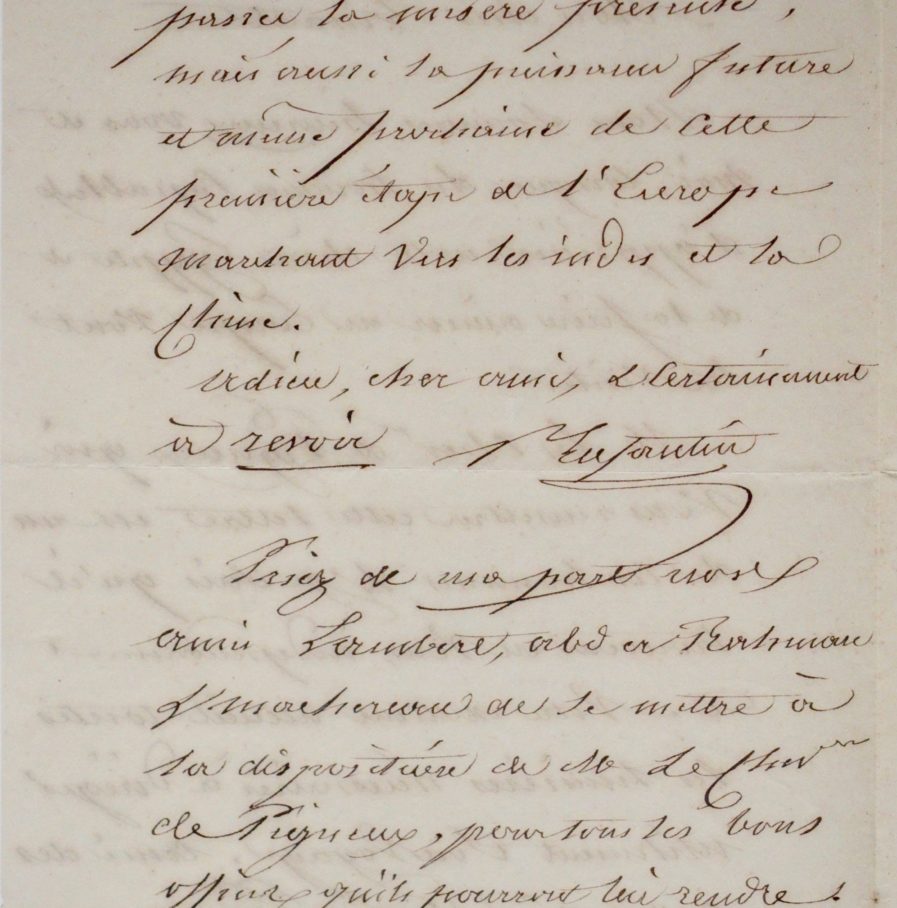 passer la misère présente,
mais aussi la puissance future
et même prochaine de cette
première étape de l'Europe
marchant vers les indes et la
Chine.
adieu, cher ami, & certainement
à revoir Enfantin
Priez de ma part nos
amis Lambert, abd er Rahman
& machereau de se mettre à
la disposition de M Le Chev<sup>er</sup>
de Pigneux, pour tous les bons
offices qu'ils pourront lui rendre.